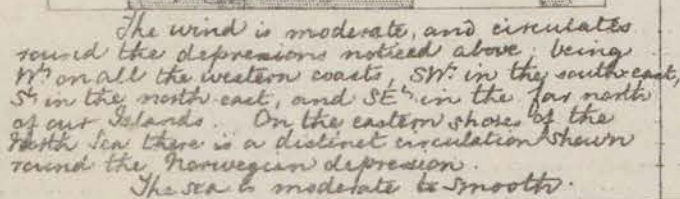 The wind is moderate, and circulates
round the depressions noticed above; being
Wy on all the western coasts, SWy in the south east,
Sy in the north east, and SEy in the far north
of our Islands. On the eastern shores of the
North Sea there is a distinct circulation shewn
round the Norwegian depression.
The sea is moderate to smooth.